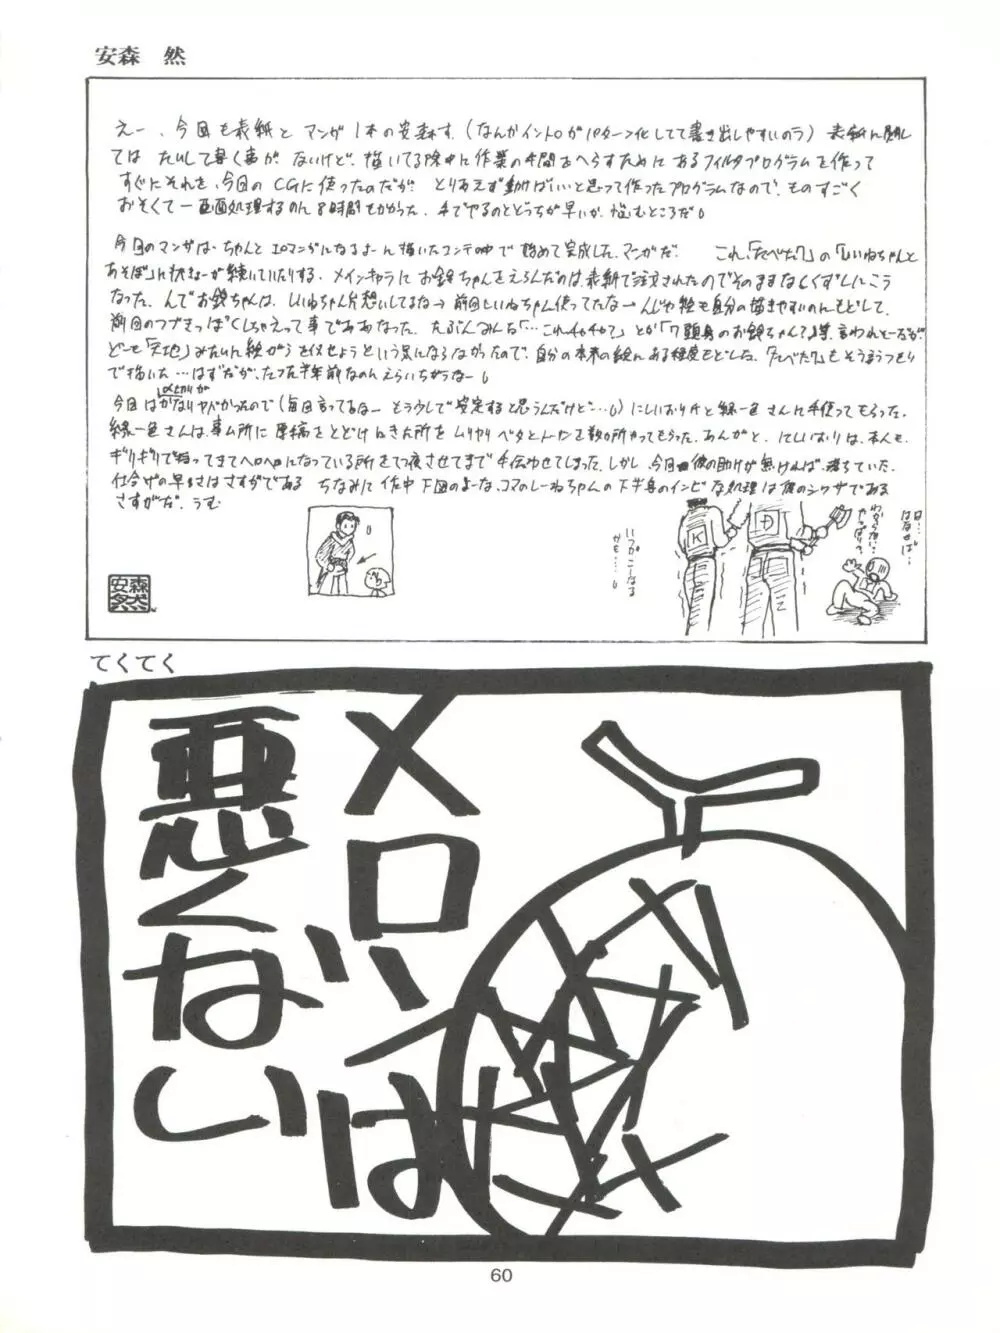 安森 然
えー、今回も表紙と マンガ1本の安森す。(なんかイントロがパターン化してて書き出しやすいのう) 表紙に関し
ては たいして書く事が ないけど、描いてる途中に作業の手間をへらすために あるフィルタプログラムを作って
すぐにそれを、今回の CGに使ったのだが とりあえず動けばいいと思って作ったプログラムなので、ものすごく
おそくて一画面処理するのに8時間もかかった。手でやるのとどっちが早いか、悩むところだ。
今回のマンガは、ちゃんと エロマンガになるよーに描いたコンテの中で 始めて完成した、マンガだ。 これ、「たべた?」の「しいねちゃんと
あそぼ」に 続いていたりする。メインキャラに お鈴ちゃんをえらんだのは、表紙で注文されたのでそのままなしくずしにこう
なった。んでお鈴ちゃんは、しいねちゃん片想いしてるな→前回しいねちゃん使ってたな→んじゃ絵も自分の描きやすいのにもどして、
前回のつづきっぽくしちゃえって事でああなった。たぶんみんな「…これチャチャ?」とか「7頭身のお鈴ちゃんて」等、言われそーだが、
どーも「天地」みたいに絵がらを似せようという気にならなかったので、自分の本来の絵に ある程度もどした。「たべた?」も そうゆうつもり
で描いた…はずだが、たった半年前なのに えらいちがうなー。
今回は〆切りがかなりヤバかったので(毎回言ってるなー もう少しで安定すると思うんだけど…。) にしいおり氏と緑一色さんに手伝ってもらった。
緑一色さんは、事ム所に 原稿を とどけにきた所を ムリヤリ ベタとトーンを数ヶ所やってもらった。あんがと。にしいおりは、本人も、
ギリギリで 帰ってきてヘロヘロになっている所をてつ夜させてまで 手伝わせてしまった。しかし、今回 彼の助けが無ければ、落ちていた。
仕上げの早さはさすがである ちなみに 作中 下図のよーな、コマのしーねちゃんの下半身のインビな処理は彼のシワザである
さすがだ。うむ
いつかこーなる
かも……。
K
D
わからない…
やっぱり?
安森
然
てくてく
メロンは
悪くない
60